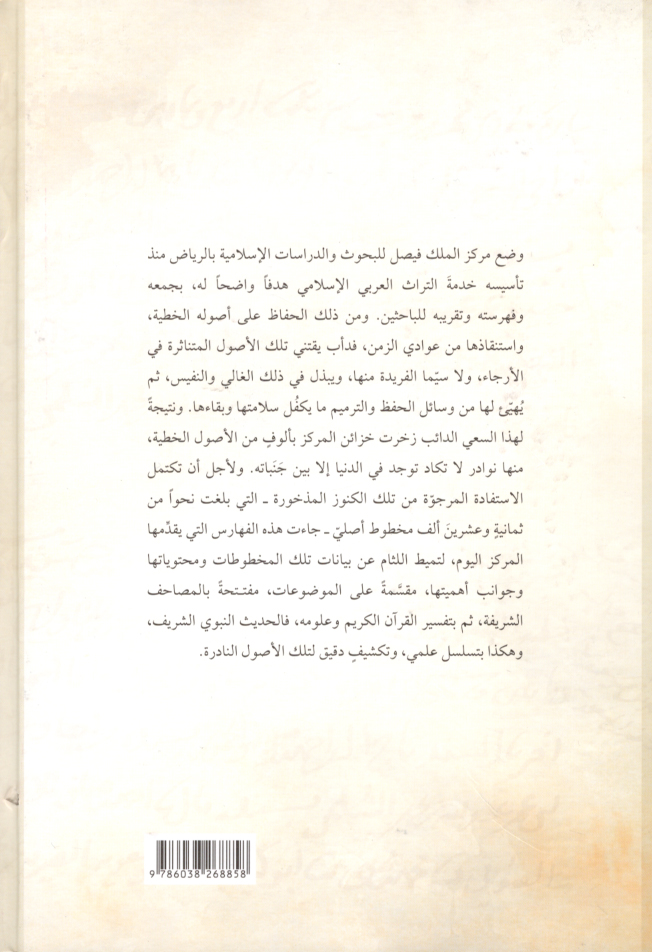 وضع مركز الملك فيصل للبحوث والدراسات الإسلامية بالرياض منذ
تأسيسه خدمةَ التراث العربي الإسلامي هدفاً واضحاً له، بجمعه
وفهرسته وتقريبه للباحثين. ومن ذلك الحفاظ على أصوله الخطية،
واستنقاذها من عوادي الزمن، فدأب يقتني تلك الأصول المتناثرة في
الأرجاء، ولا سيّما الفريدة منها، ويبذل في ذلك الغالي والنفيس، ثم
يُهيّئ لها من وسائل الحفظ والترميم ما يكفُل سلامتها وبقاءها. ونتيجةً
لهذا السعي الدائب زخرت خزائن المركز بألوفٍ من الأصول الخطية،
منها نوادر لا تكاد توجد في الدنيا إلا بين جَنَباته. ولأجل أن تكتمل
الاستفادة المرجوّة من تلك الكنوز المذخورة ـ التي بلغت نحواً من
ثمانيةٍ وعشرينَ ألف مخطوط أصليّ ـ جاءت هذه الفهارس التي يقدِّمها
المركز اليوم، لتميط اللثام عن بيانات تلك المخطوطات ومحتوياتها
وجوانب أهميتها، مقسَّمةً على الموضوعات، مفتتحةً بالمصاحف
الشريفة، ثم بتفسير القرآن الكريم وعلومه، فالحديث النبوي الشريف،
وهكذا بتسلسل علمي، وتكشيفٍ دقيق لتلك الأصول النادرة.
9 786038 268858